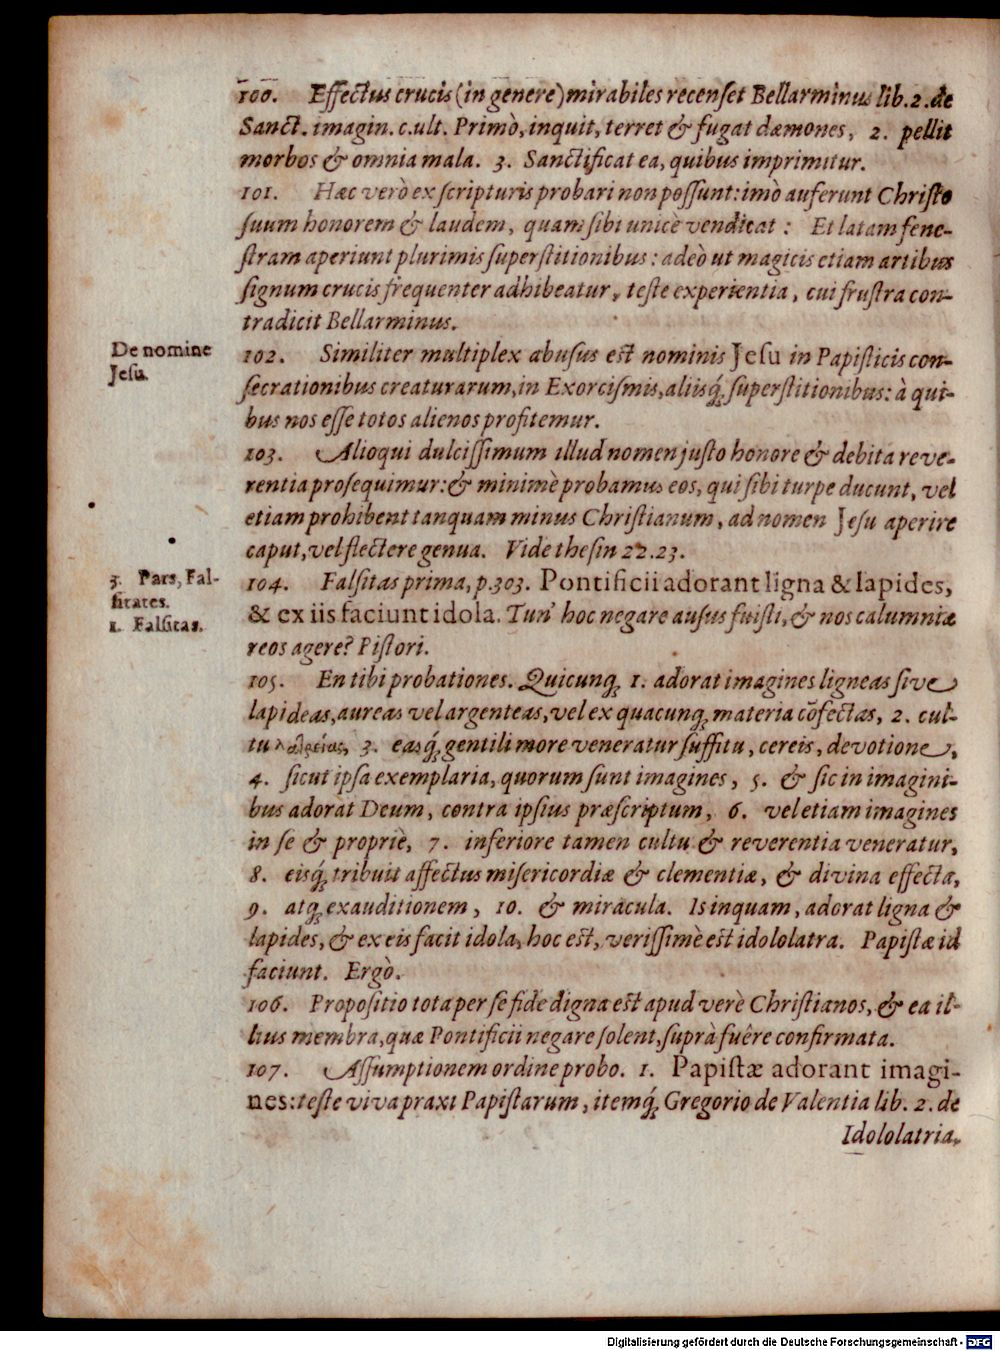 100. Effectus crucis (in genere) mirabiles recenset Bellarminus lib. 2. de
Sanct. imagin. c. ult. Primò, inquit, terret & fugat dæmones, 2. pellit
morbos & omnia mala. 3. Sanctificat ea, quibus imprimitur.
101. Hæc verò ex scripturis probari non possunt: imò auferunt Christo
suum honorem & laudem, quam sibi unicè vendicat: Et latam fene-
stram aperiunt plurimis superstitionibus: adeò ut magicis etiam artibus
signum crucis frequenter adhibeatur, teste experientia, cui frustra con-
tradicit Bellarminus.
De nomine
Jesu.
102. Similiter multiplex abusus est nominis Jesu in Papisticis con-
secrationibus creaturarum, in Exorcismis, aliisq́; superstitionibus: à qui-
bus nos esse totos alienos profitemur.
103. Alioqui dulcissimum illud nomen justo honore & debita reve-
rentia prosequimur: & minimè probamus eos, qui sibi turpe ducunt, vel
etiam prohibent tanquam minus Christianum, ad nomen Jesu aperire
caput, vel flectere genua. Vide thesin 22. 23.
3. Pars, Fal-
sitates.
1. Falsitas.
104. Falsitas prima, p. 303. Pontificii adorant ligna & lapides,
& ex iis faciunt idola. Tun' hoc negare ausus fuisti, & nos calumniæ
reos agere? Pistori.
105. En tibi probationes. Quicunq; 1. adorat imagines ligneas sive
lapideas, aureas vel argenteas, vel ex quacunq; materia cõfectas, 2. cul-
tu λατρείας, 3. easq́; gentili more veneratur suffitu, cereis, devotione,
4. sicut ipsa exemplaria, quorum sunt imagines, 5. & sic in imagini-
bus adorat Deum, contra ipsius præscriptum, 6. vel etiam imagines
in se & propriè, 7. inferiore tamen cultu & reverentia veneratur,
8. eisq́; tribuit affectus misericordiæ & clementiæ, & divina effecta,
9. atq; exauditionem, 10. & miracula. Is inquam, adorat ligna &
lapides, & ex eis facit idola, hoc est, verissimè est idololatra. Papistæ id
faciunt. Ergò.
106. Propositio tota per se fide digna est apud verè Christianos, & ea il-
lius membra, quæ Pontificii negare solent, suprà fuêre confirmata.
107. Assumptionem ordine probo. 1. Papistæ adorant imagi-
nes: teste viva praxi Papistarum, itemq́; Gregorio de Valentia lib. 2. de
Idololatria,
Digitalisierung gefördert durch die Deutsche Forschungsgemeinschaft - DFG